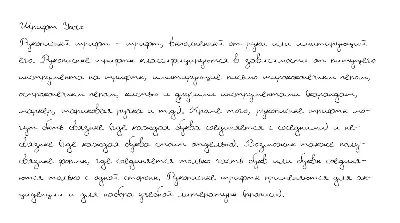 Шрифт Часо
Рукописный шрифт - шрифт, выполненный от руки или имитирующий
его. Рукописные шрифты классифицируются в зависимости от пишущего
инструмента на шрифты, имитирующие письмо ширококонечным пером,
остроконечным пером, кистью и другими инструментами (карандаш,
маркер, шариковая ручка и т.д.). Кроме того, рукописные шрифты мо-
гут быть связные (где каждая буква соединяется с соседними) и не-
связные (где каждая буква стоит отдельно). Возможно также полу-
связные формы, где соединяется только часть букв или буквы соединя-
ются только с одной стороны. Рукописные шрифты применяются для ак-
циденции и для набора учебной литературы (прописи).